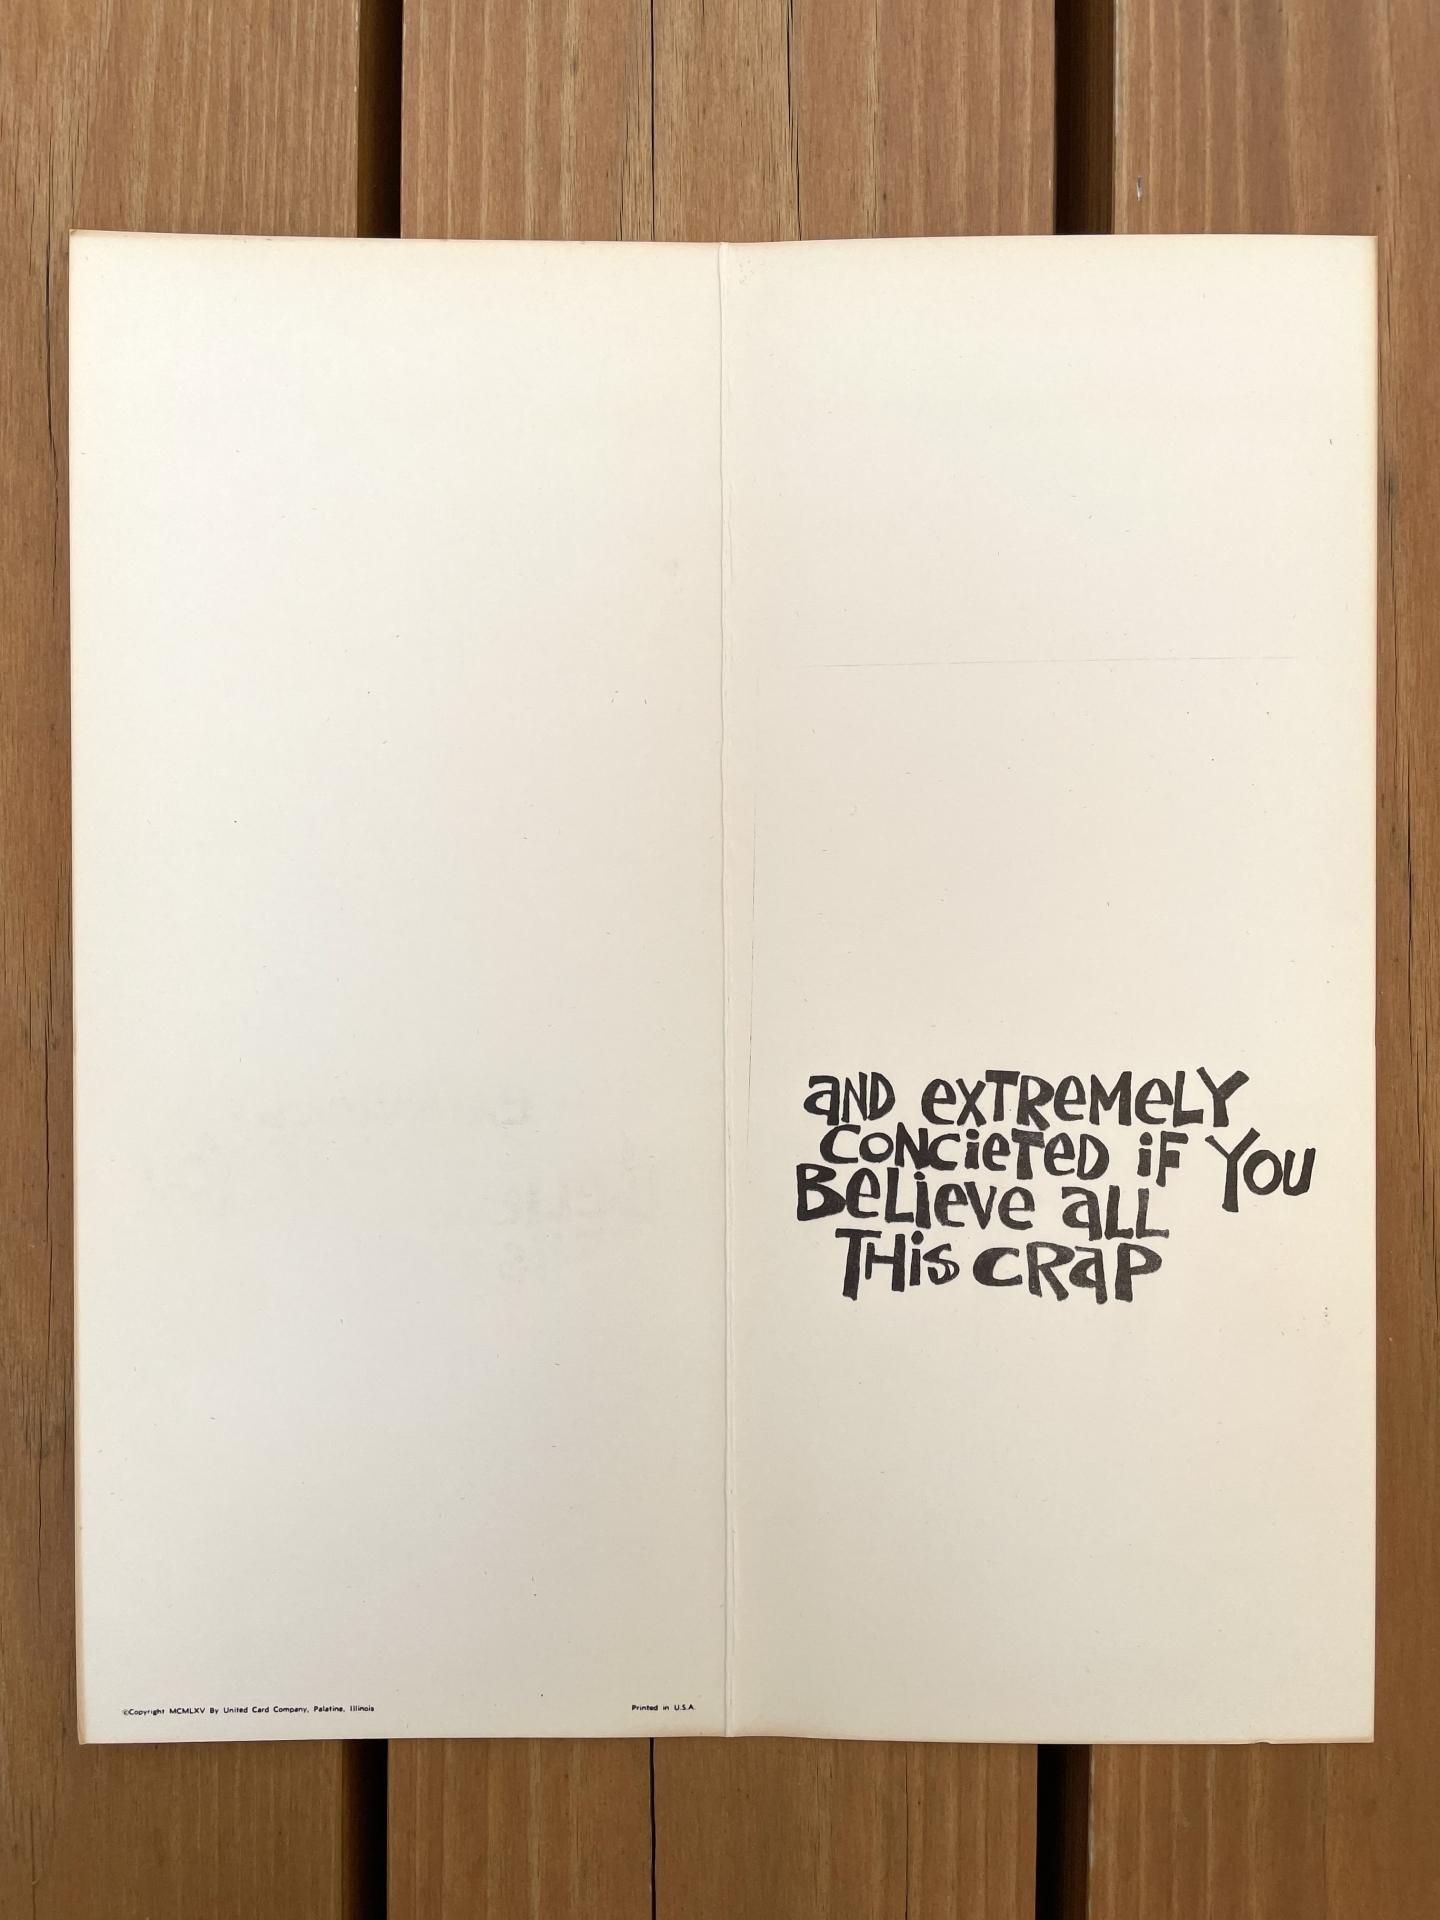 aND exTReMeLY
CONCieTeD iF YOU
BeLieve aLL
THiS CRaP
©Copyright MCMLXV By United Card Company, Palatine, Illinois
Printed in U.S.A.